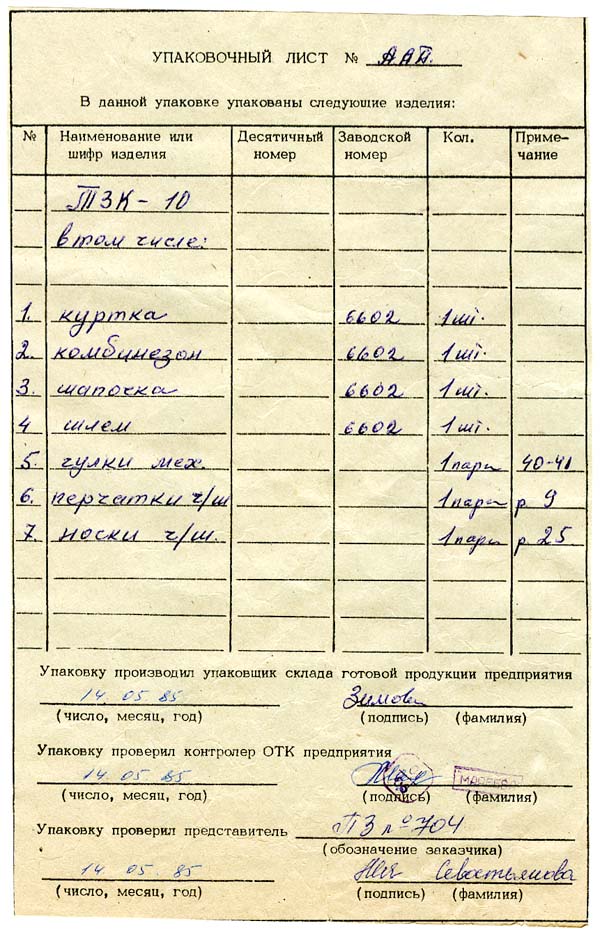 УПАКОВОЧНЫЙ ЛИСТ № ААП.
В данной упаковке упакованы следующие изделия:
№ Наименование или шифр изделия Десятичный номер Заводской номер Кол. Приме-чание
ТЗК-10
в том числе:
1. куртка 6602 1 шт.
2. комбинезон 6602 1 шт.
3. шапочка 6602 1 шт.
4 шлем 6602 1 шт.
5. чулки мех. 1 пара 40-41
6. перчатки ч/ш 1 пара р 9
7. носки ч/ш. 1 пара р 25
Упаковку производил упаковщик склада готовой продукции предприятия
14. 05 85
(число, месяц, год) (подпись) (фамилия)
Упаковку проверил контролер ОТК предприятия
14. 05. 85
(число, месяц, год) (подпись) (фамилия)
Упаковку проверил представитель ПЗ № 704
(обозначение заказчика)
14. 05. 85 Севостьянова
(число, месяц, год) (подпись) (фамилия)